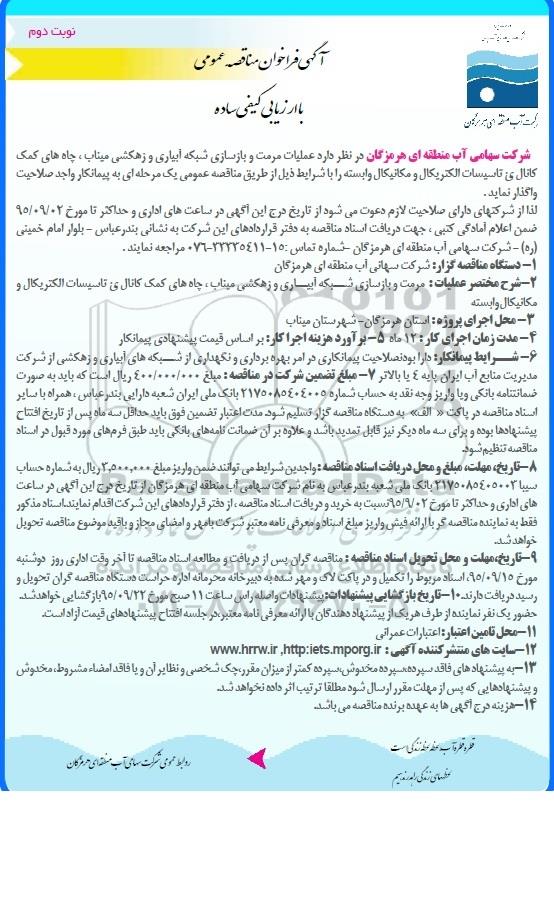 نوبت دوم
آگهی فراخوان مناقصه عمومی
با ارزیابی کیفی ساده
شرکت آب منطقه ای هرمزگان
شرکت سهامی آب منطقه ای هرمزگان در نظر دارد عملیات مرمت و بازسازی شبکه آبیاری و زهکشی میناب ، چاه های کمک
کانال ئ تاسیسات الکتریکال و مکانیکال وابسته را با شرایط ذیل از طریق مناقصه عمومی یک مرحله ای به پیمانکار واجد صلاحیت
واگذار نماید .
لذا از شرکتهای دارای صلاحیت لازم دعوت می شود از تاریخ درج این آگهی در ساعت های اداری و حداکثر تا مورخ ۹۵/۰۹/۰۲
ضمن اعلام آمادگی کتبی ، جهت دریافت اسناد مناقصه به دفتر قراردادهای این شرکت به نشانی بندرعباس - بلوار امام خمینی
(ره) - شرکت سهامی آب منطقه ای هرمزگان -شماره تماس :۱۵-۰۷۶-۳۳۳۳۵۴۱۱ مراجعه نمایند .
۱- دستگاه مناقصه گزار: شرکت سهامی آب منطقه ای هرمزگان
۲-شرح مختصر عملیات : مرمت و بازسازی شبکه آبیاری و زهکشی میناب ، چاه های کمک کانال ئ تاسیسات الکتریکال و
مکانیکال وابسته
۳- محل اجرای پروژه : استان هرمزگان- شهرستان میناب
۴- مدت زمان اجرای کار : ۱۲ ماه ۵- برآورد هزینه اجرا کار: بر اساس قیمت پیشنهادی پیمانکار
۶- شرایط پیمانکار: دارا بودنصلاحیت پیمانکاری در امر بهره برداری و نگهداری از شبکه های آبیاری و زهکشی از شرکت
مدیریت منابع آب ایران پایه ۴ یا بالاتر ۷- مبلغ تضمین شرکت در مناقصه : مبلغ ۴۰۰/۰۰۰/۰۰۰ ریال است که باید به صورت
ضمانتنامه بانکی ویا واریز وجه نقد به حساب شماره ۲۱۷۵۰۸۵۴۰۴۰۰۵ بانک ملی ایران شعبه دارایی بندرعباس ، همراه با سایر
اسناد مناقصه در پاکت « الف» به دستگاه مناقصه گزار تسلیم شود. مدت اعتبار تضمین فوق باید حداقل سه ماه پس از تاریخ افتتاح
پیشنهادها بوده و برای سه ماه دیگر نیز قابل تمدید باشد و علاوه بر آن ضمانت نامه‌های بانکی باید طبق فرم‌های مورد قبول در اسناد
مناقصه تنظیم شود.
۸-تاریخ، مهلت، مبلغ و محل دریافت اسناد مناقصه : واجدین شرایط می توانند ضمن واریز مبلغ ۲,۵۰۰,۰۰۰ ریال به شماره حساب
سیبا ۲۱۷۵۰۸۵۴۰۵۰۰۳ بانک ملی شعبه بندرعباس به نام شرکت سهامی آب منطقه ای هرمزگان از تاریخ درج این آگهی در ساعت
های اداری و حداکثر تا مورخ ۹۵/۹/۰۲نسبت به خرید و دریافت اسناد مناقصه ، از دفتر قراردادهای این شرکت اقدام نمایند.اسناد مذکور
فقط به نماینده مناقصه گر با ارائه فیش واریز مبلغ اسناد و معرفی نامه معتبر شرکت بامهر و امضای مجاز و باقید موضوع مناقصه تحویل
خواهد شد.
۹-تاریخ،مهلت و محل تحویل اسناد مناقصه : مناقصه گران پس از دریافت و مطالعه اسناد مناقصه تا آخر وقت اداری روز دوشنبه
مورخ ۹۵/۰۹/۱۵، اسناد مربوط را تکمیل و در پاکت لاک و مهر شده به دبیرخانه محرمانه اداره حراست دستگاه مناقصه گران تحویل و
رسید دریافت دارند. ۱۰-تاریخ بازگشایی پیشنهادات: پیشنهادات واصله راس ساعت ۱۱ صبح مورخ ۹۵/۰۹/۲۲ بازگشایی خواهد شد.
حضور یک نفر نماینده از طرف هر یک از پیشنهاد دهندگان با ارائه معرفی نامه معتبر، در جلسه افتتاح پیشنهادهای قیمت آزاد است.
۱۱-محل تامین اعتبار: اعتبارات عمرانی
۱۲-سایت های منتشر کننده آگهی : www.hrrw.ir ,http:iets.mporg.ir
۱۳-به پیشنهاد های فاقد سپرده،سپرده مخدوش،سپرده کمتر از میزان مقرر،چک شخصی و نظایر آن و یا فاقد امضاء مشروط، مخدوش
و پیشنهادهایی که پس از مهلت مقرر ارسال شود مطلقا ترتیب اثر داده نخواهد شد.
۱۴-هزینه درج آگهی ها به عهده برنده مناقصه می باشد.
قطره قطره آب، لحظه لحظه زندگی است
لحظه‌های زندگی را هدر ندهیم
روابط عمومی شرکت سهامی آب منطقه ای هرمزگان